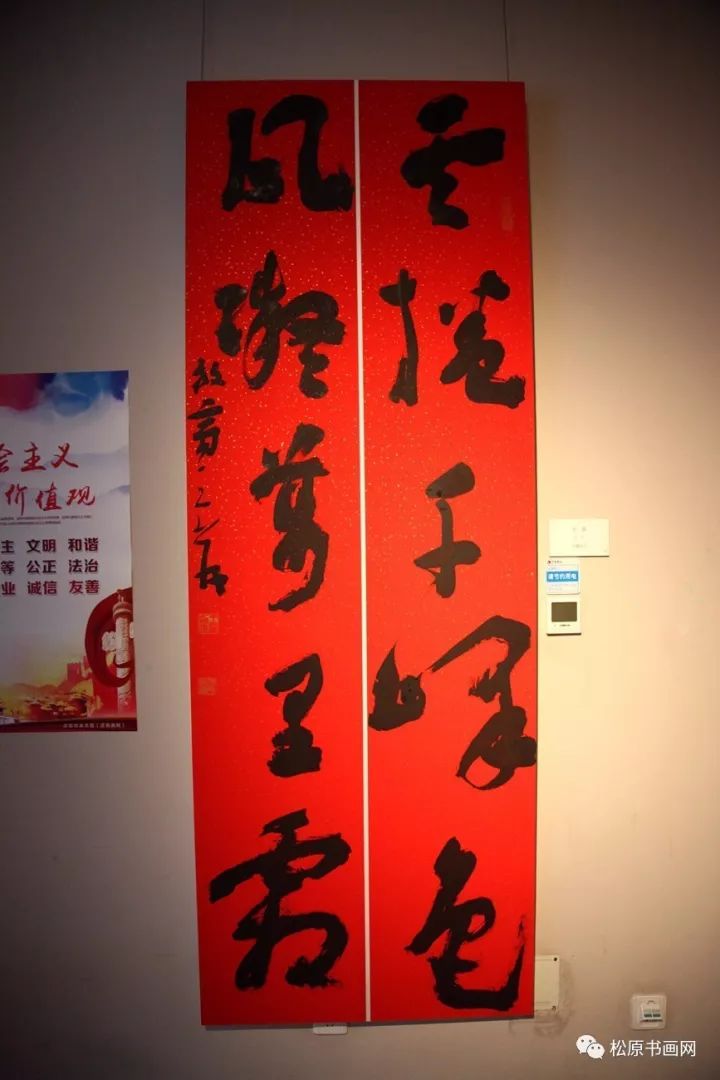 云捲千峰色
风凝萬里霜
会主义
价值观
主 文明 和谐
等 公正 法治
业 诚信 友善
松原书画网